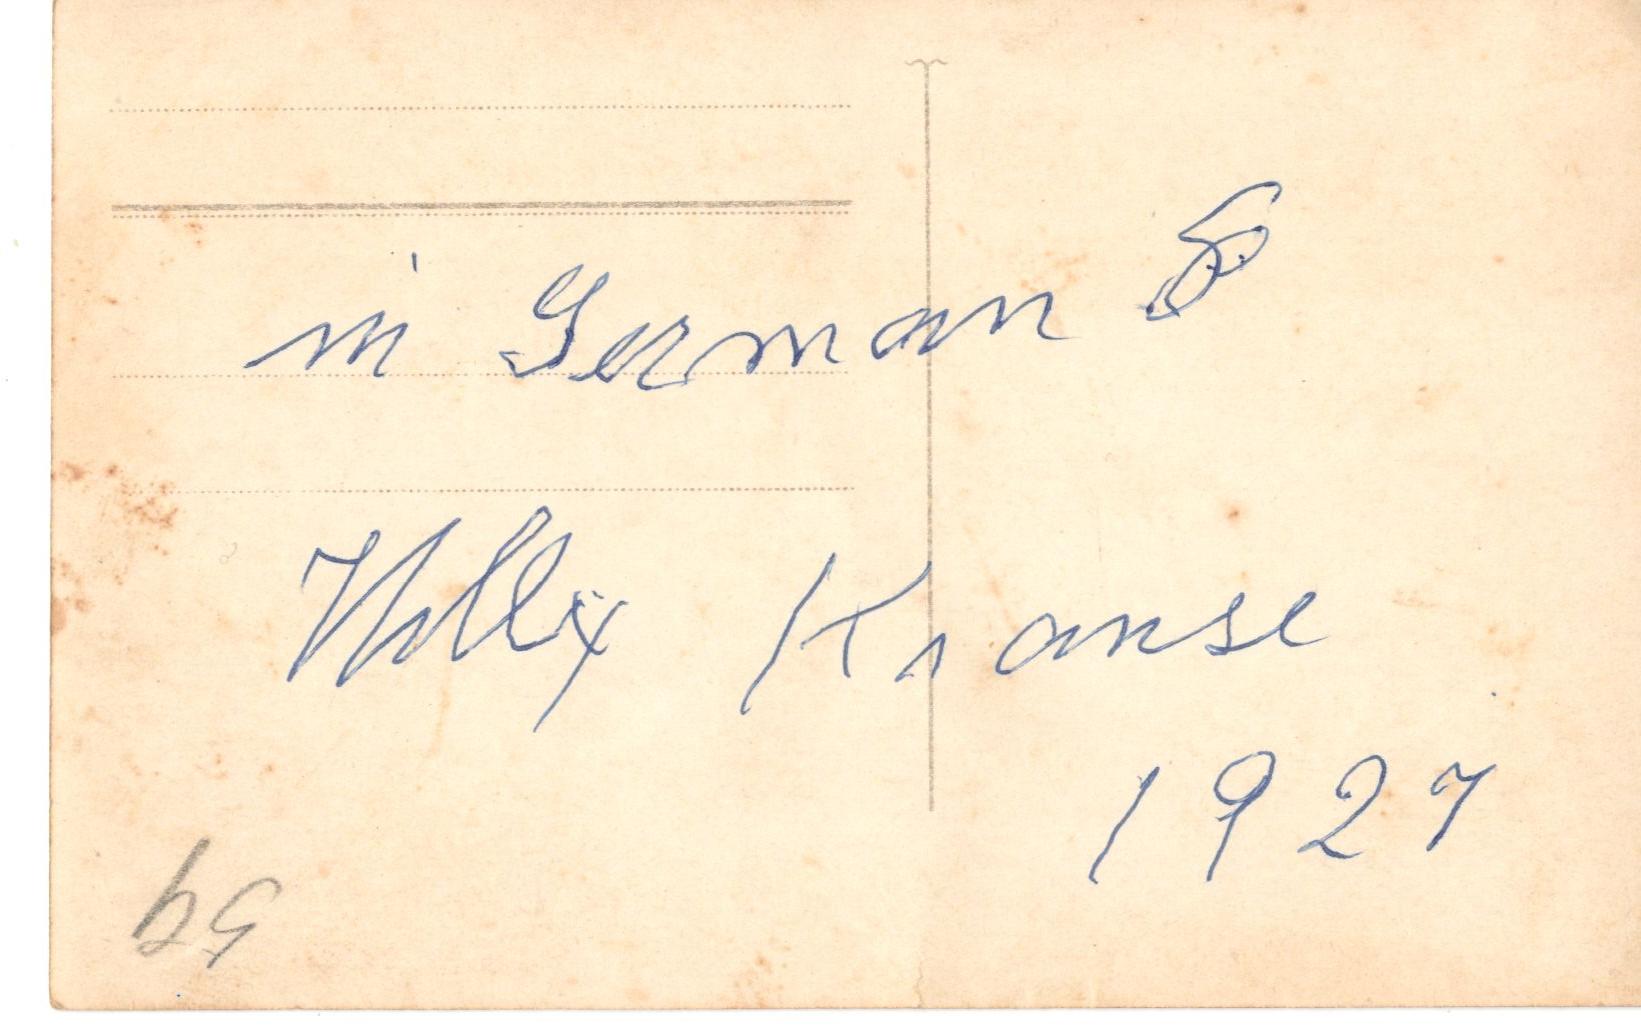 in German
Willy Krause
1927
59